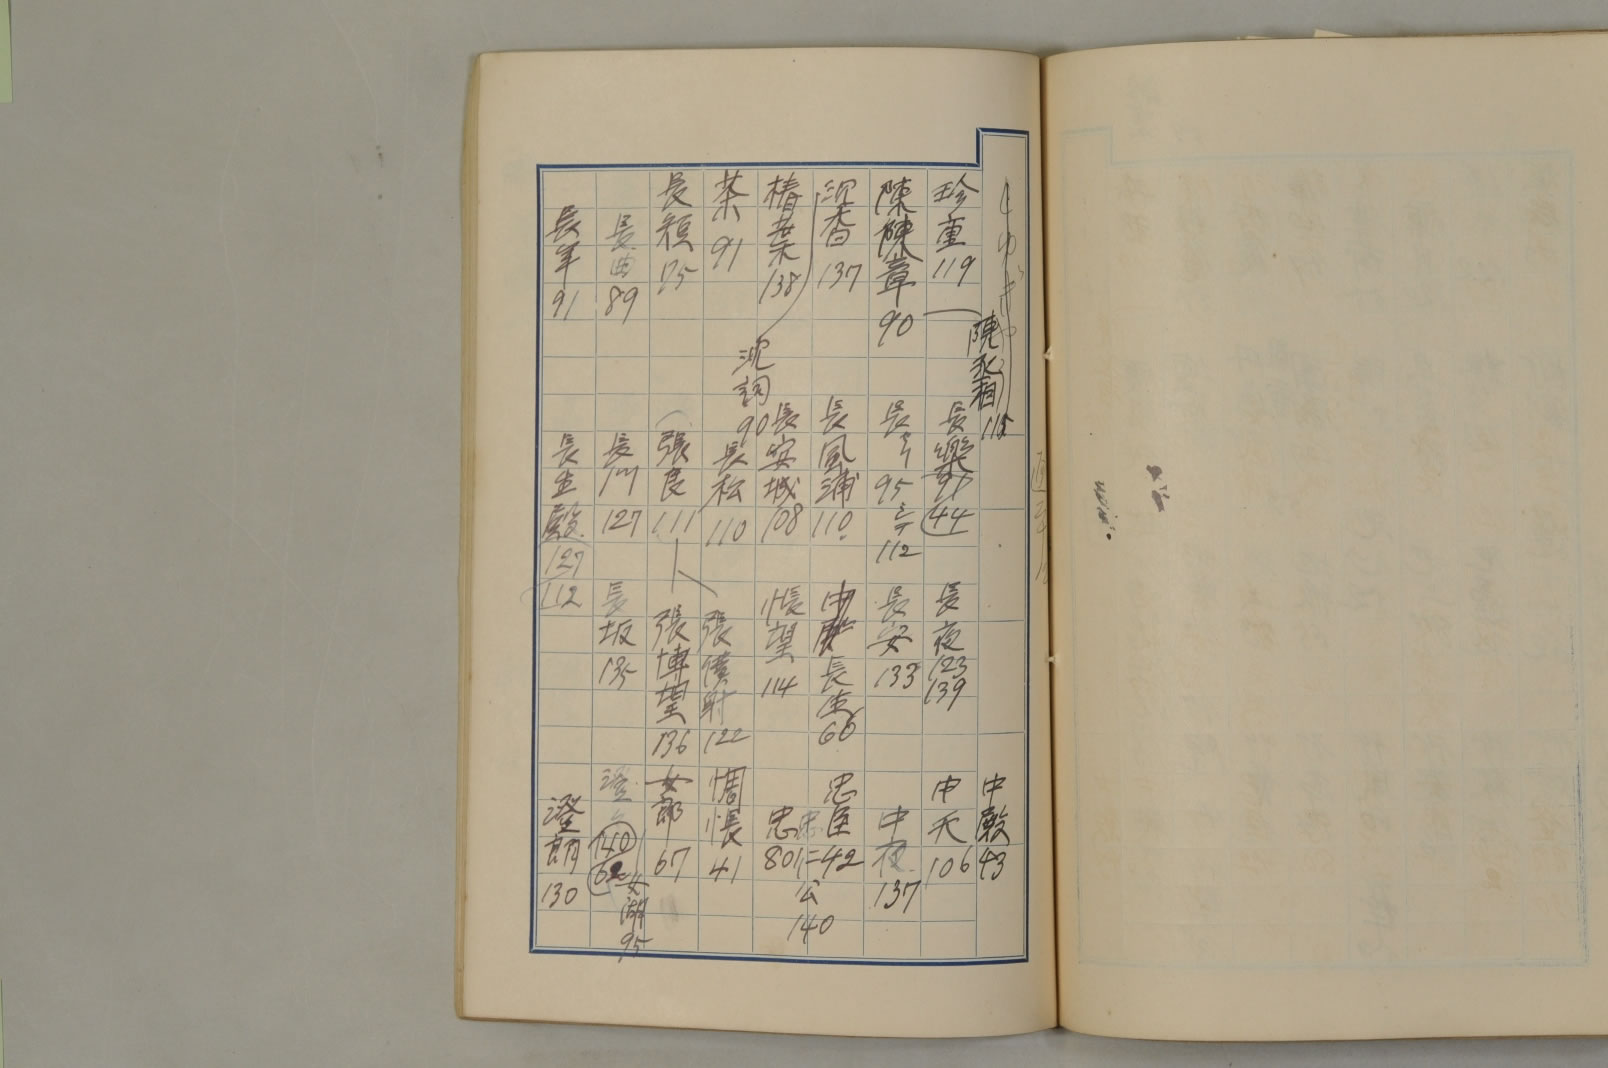 珍重 119
陳丞相 115
長樂 91 44
長夜 123 139
中殿 43
中天 106
陳陳章 90
長 95 112
長安 133
中夜 137
沉香 137
長風浦 110
長 66
忠臣 42
椿葉 138
沈詞 90
長安城 108
悵望 114
忠仁公 140
801
茶 91
長松 110
張僕射 122
惆悵 41
長穎 75
張良 111
張博望 136
女郎 67
長曲 89
長門 127
長坂 135
澄 140 62
女湖 95
長年 91
長生殿 127 112
澄明 130